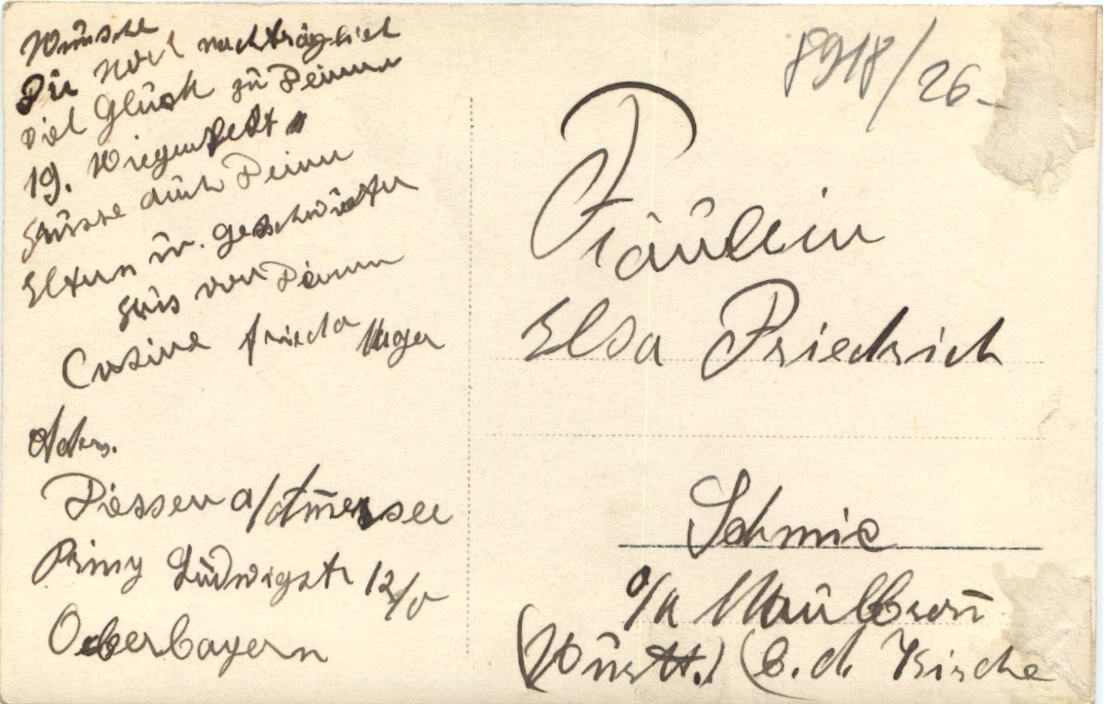 Wünsche
Dir noch nachträglich
viel Glück zu Deinem
19. Wiegenfest
Grüsse auch Deine
Eltern u. Geschwister
Grus von Deiner
Cusine Frieda
Adrs.
Diessen a/Ammersee
Prinz Ludwigstr 12/0
Oberbayern
8918/26-
Fräulein
Elsa Friedrich
Schmie
o/a Maulbron
(Württ.) (b. d. Kirche